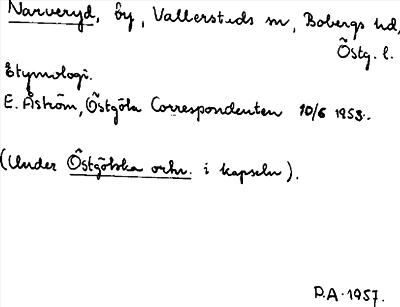 Narveryd, by, Vallersteds sn, Bobergs hd,
Östg. l.
Etymologi.
E. Åström, Östgöta Correspondenten 10/6 1953.
(Under Östgötska ortn. i kapseln).
D.A. 1957.